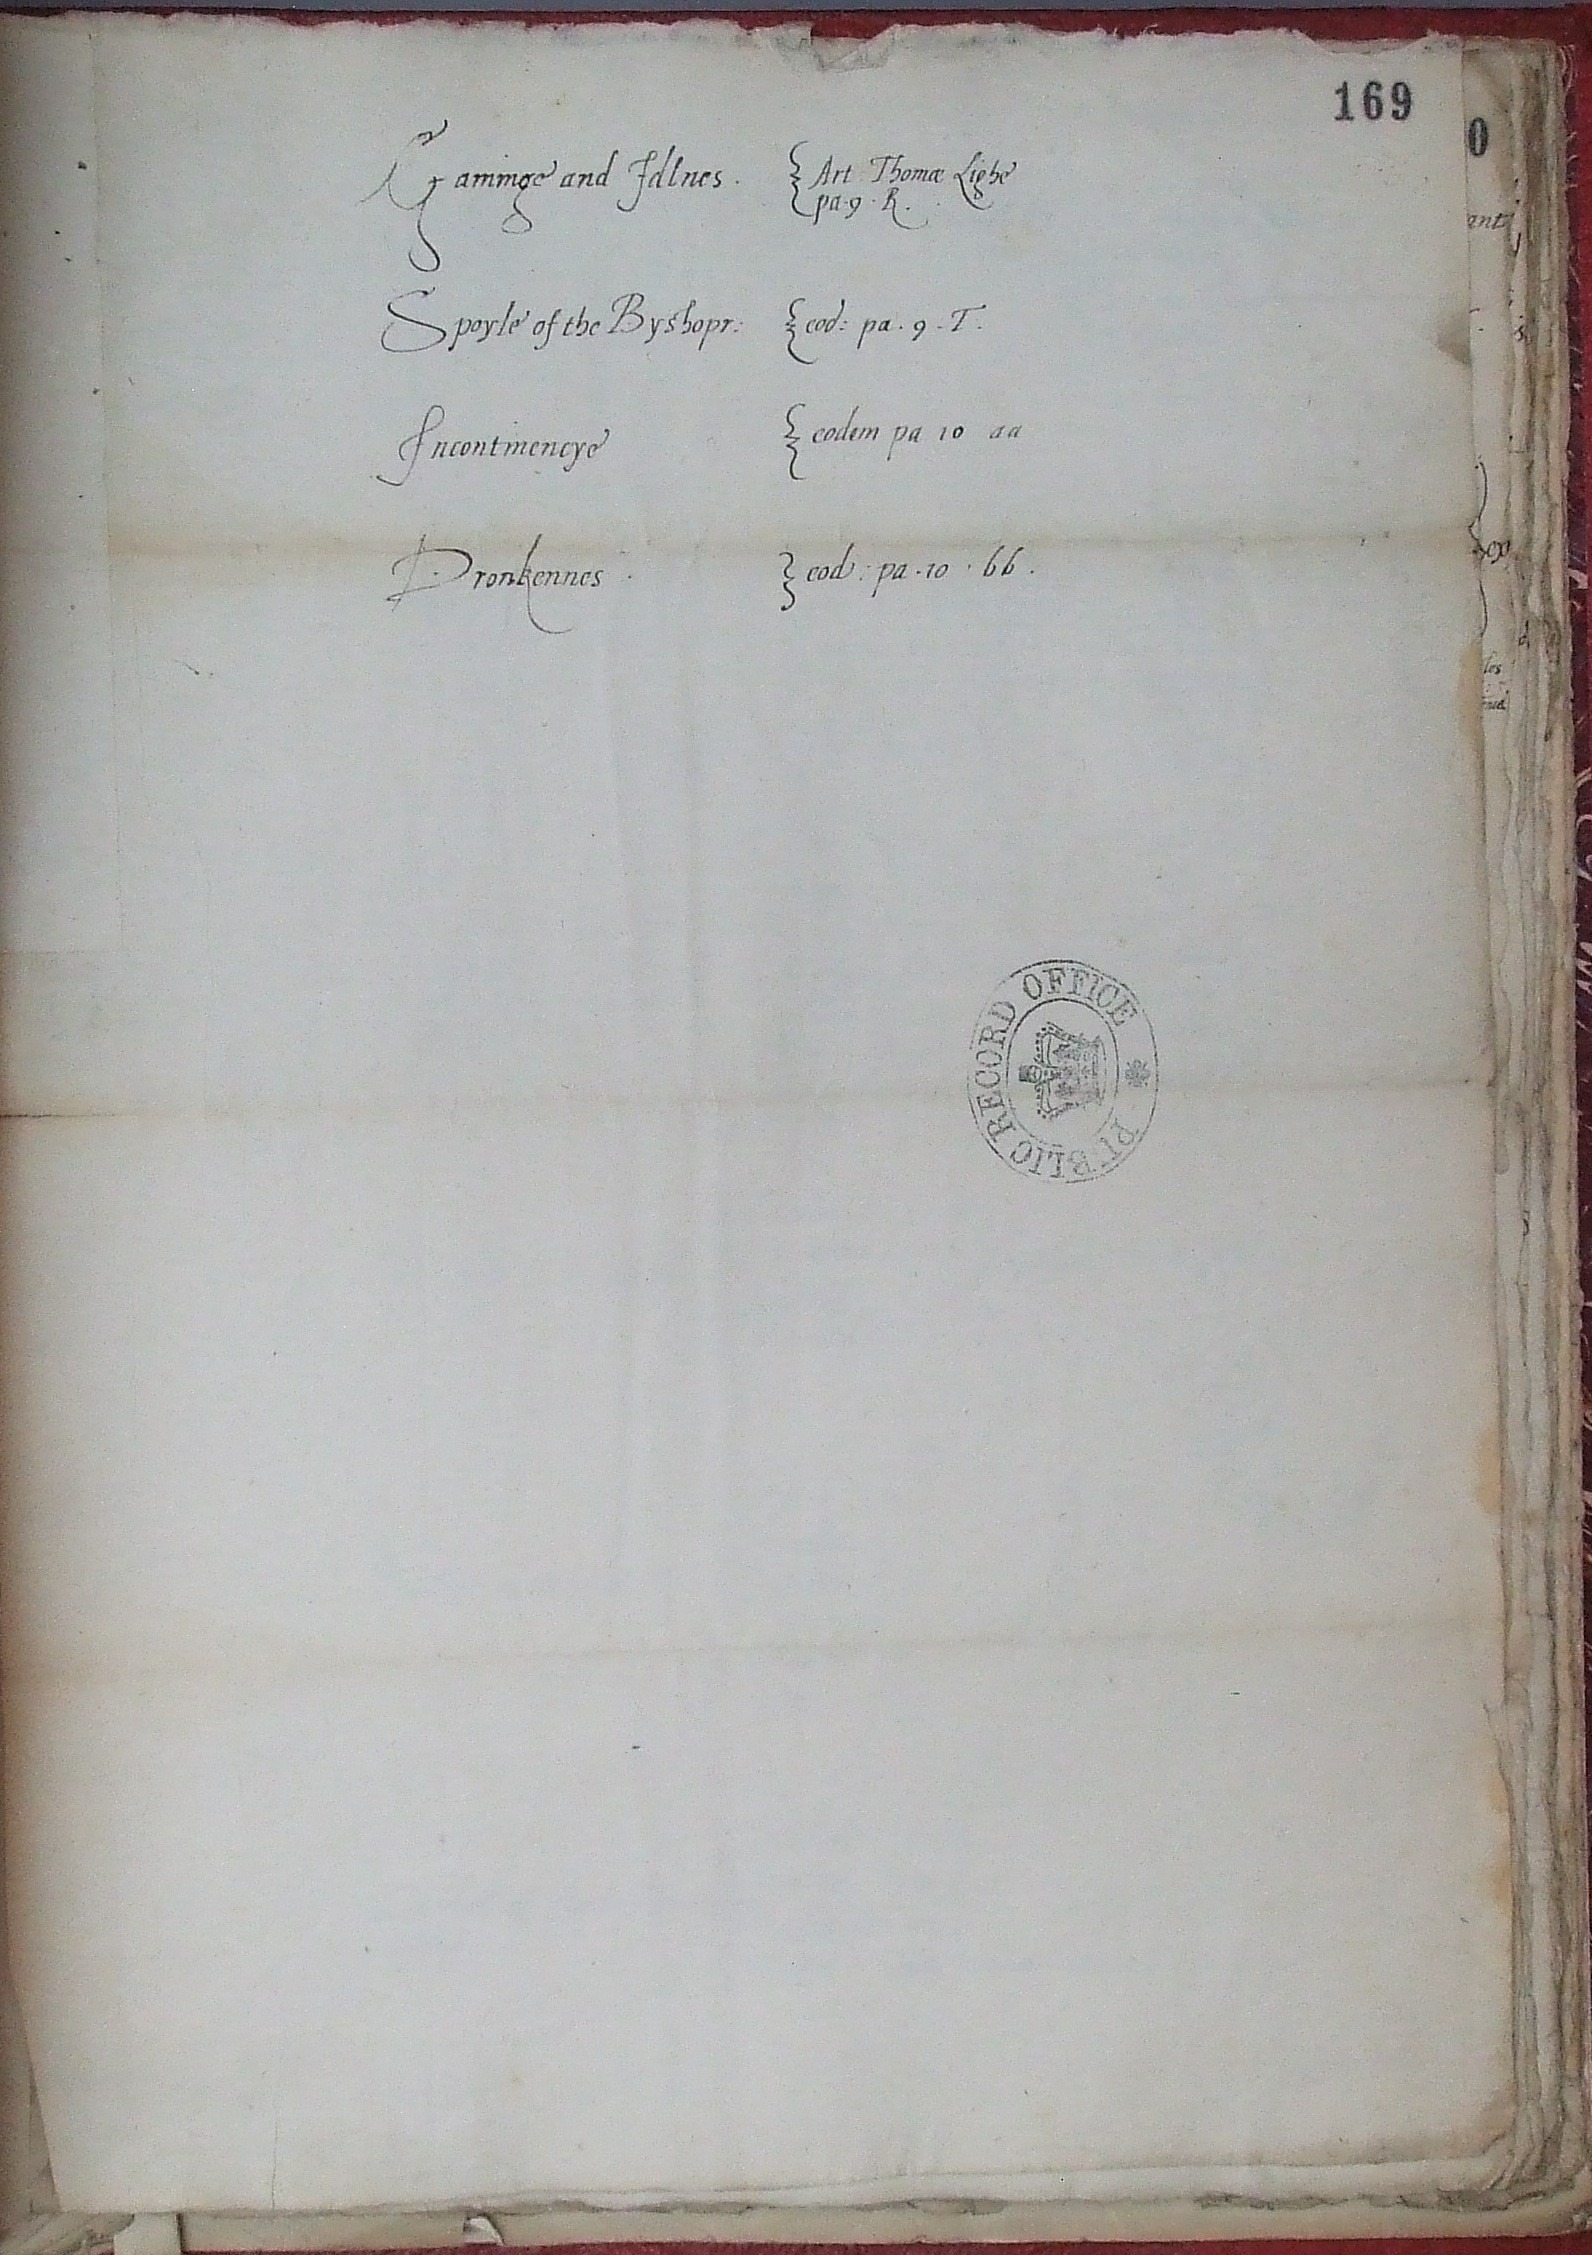 169
Gaminge and Idlnes. { Art Thomæ Lighe
pa. 9. R.
Spoyle of the Byshopr: { eod: pa. 9. T.
Incontinencye { eodem pa 10 aa
Dronkennes. } eod: pa. 10. bb.
PUBLIC RECORD OFFICE